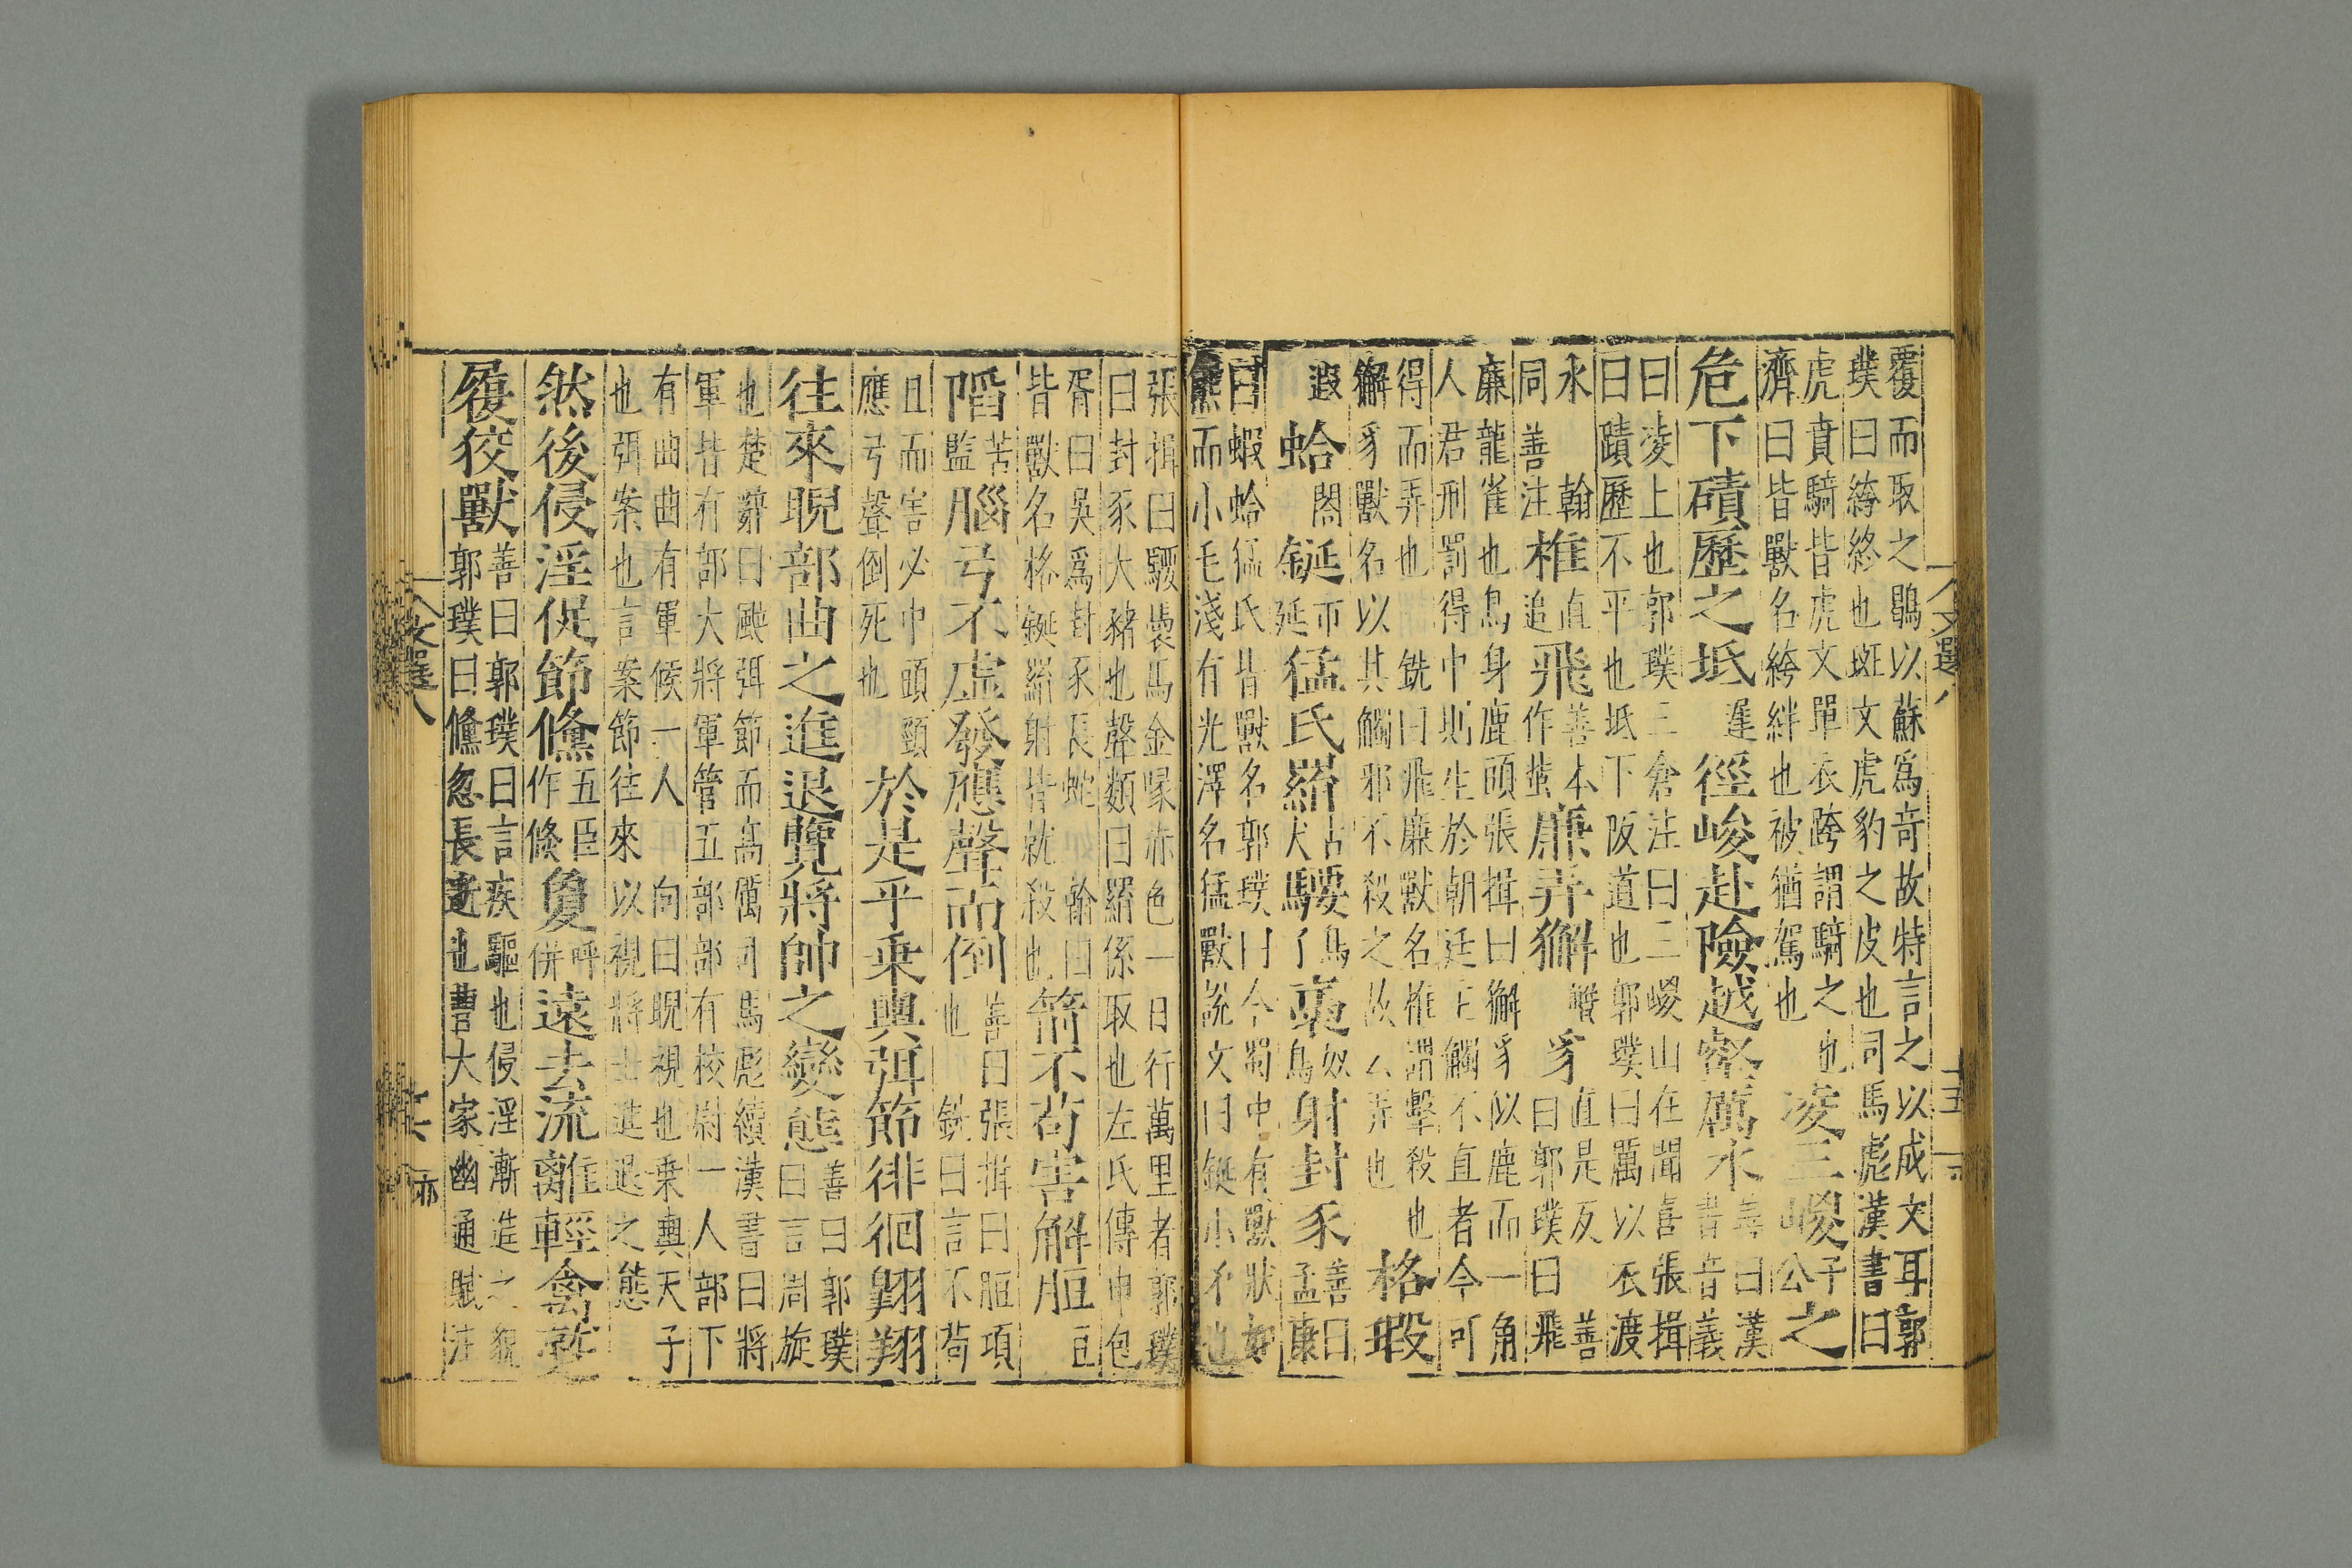 覆而取之鶡以蘇爲奇故特言之以成文耳郭
璞曰絝終也斑文虎豹之皮也司馬彪漢書曰
虎賁騎皆虎文單衣跨謂騎之也
濟曰皆獸名絝絆也被猶駕也凌三嵕子公之
危下磧歷之坻遲徑峻赴險越壑厲水善曰漢書音義
曰淩上也郭璞三倉注曰三嵕山在聞喜張揖
曰蹟歷不平也坻下阪道也郭璞曰厲以衣渡
水翰同善注椎直追飛善本作蜚廉弄獬蟹豸直是反善曰郭璞曰飛
廉龍雀也鳥身鹿頭張揖曰獬豸似鹿而一角
人君刑罰得中則生於朝廷主觸不直者今可
得而弄也銑曰飛廉獸名椎謂擊殺也
獬豸獸名以其觸邪不殺之故云弄也格瑕
遐蛤閤鋋市延猛氏羂古犬騕烏了褭奴鳥射封豕善曰孟康
曰蝦蛤猛氏皆獸名郭璞曰今蜀中有獸狀如
熊而小毛淺有光澤名猛獸說文曰鋋小矛也
張揖曰騕褭馬金喙赤色一日行萬里者郭璞
曰封豕大豬也聲類曰羂係取也左氏傳申包
胥曰吳爲封豕長蛇翰曰
皆獸名格鋋羂射皆就殺也箭不苟害解脰豆
陷苦監腦弓不虛發應聲而倒善曰張揖曰脰項也銑曰言不苟
且而害必中頭頸
應弓聲倒死也於是乎乘輿弭節徘徊翱翔
往來睨部曲之進退覽將帥之變態善曰郭璞曰言周旋
也楚辭曰颭弭節而高厲司馬彪續漢書曰將
軍皆有部大將軍管五部部有校尉一人部下
有曲曲有軍候一人向曰睨視也乘輿天子
也弭案也言案節往來以視將士進退之態
然後侵淫促節儵五臣作倏敻呼併遠去流離輕禽蹵
履狡獸善曰郭璞曰言疾驅也侵淫漸進之貌
郭璞曰儵忽長逝也曹大家幽通賦注
文選八
十五
文選八
十六